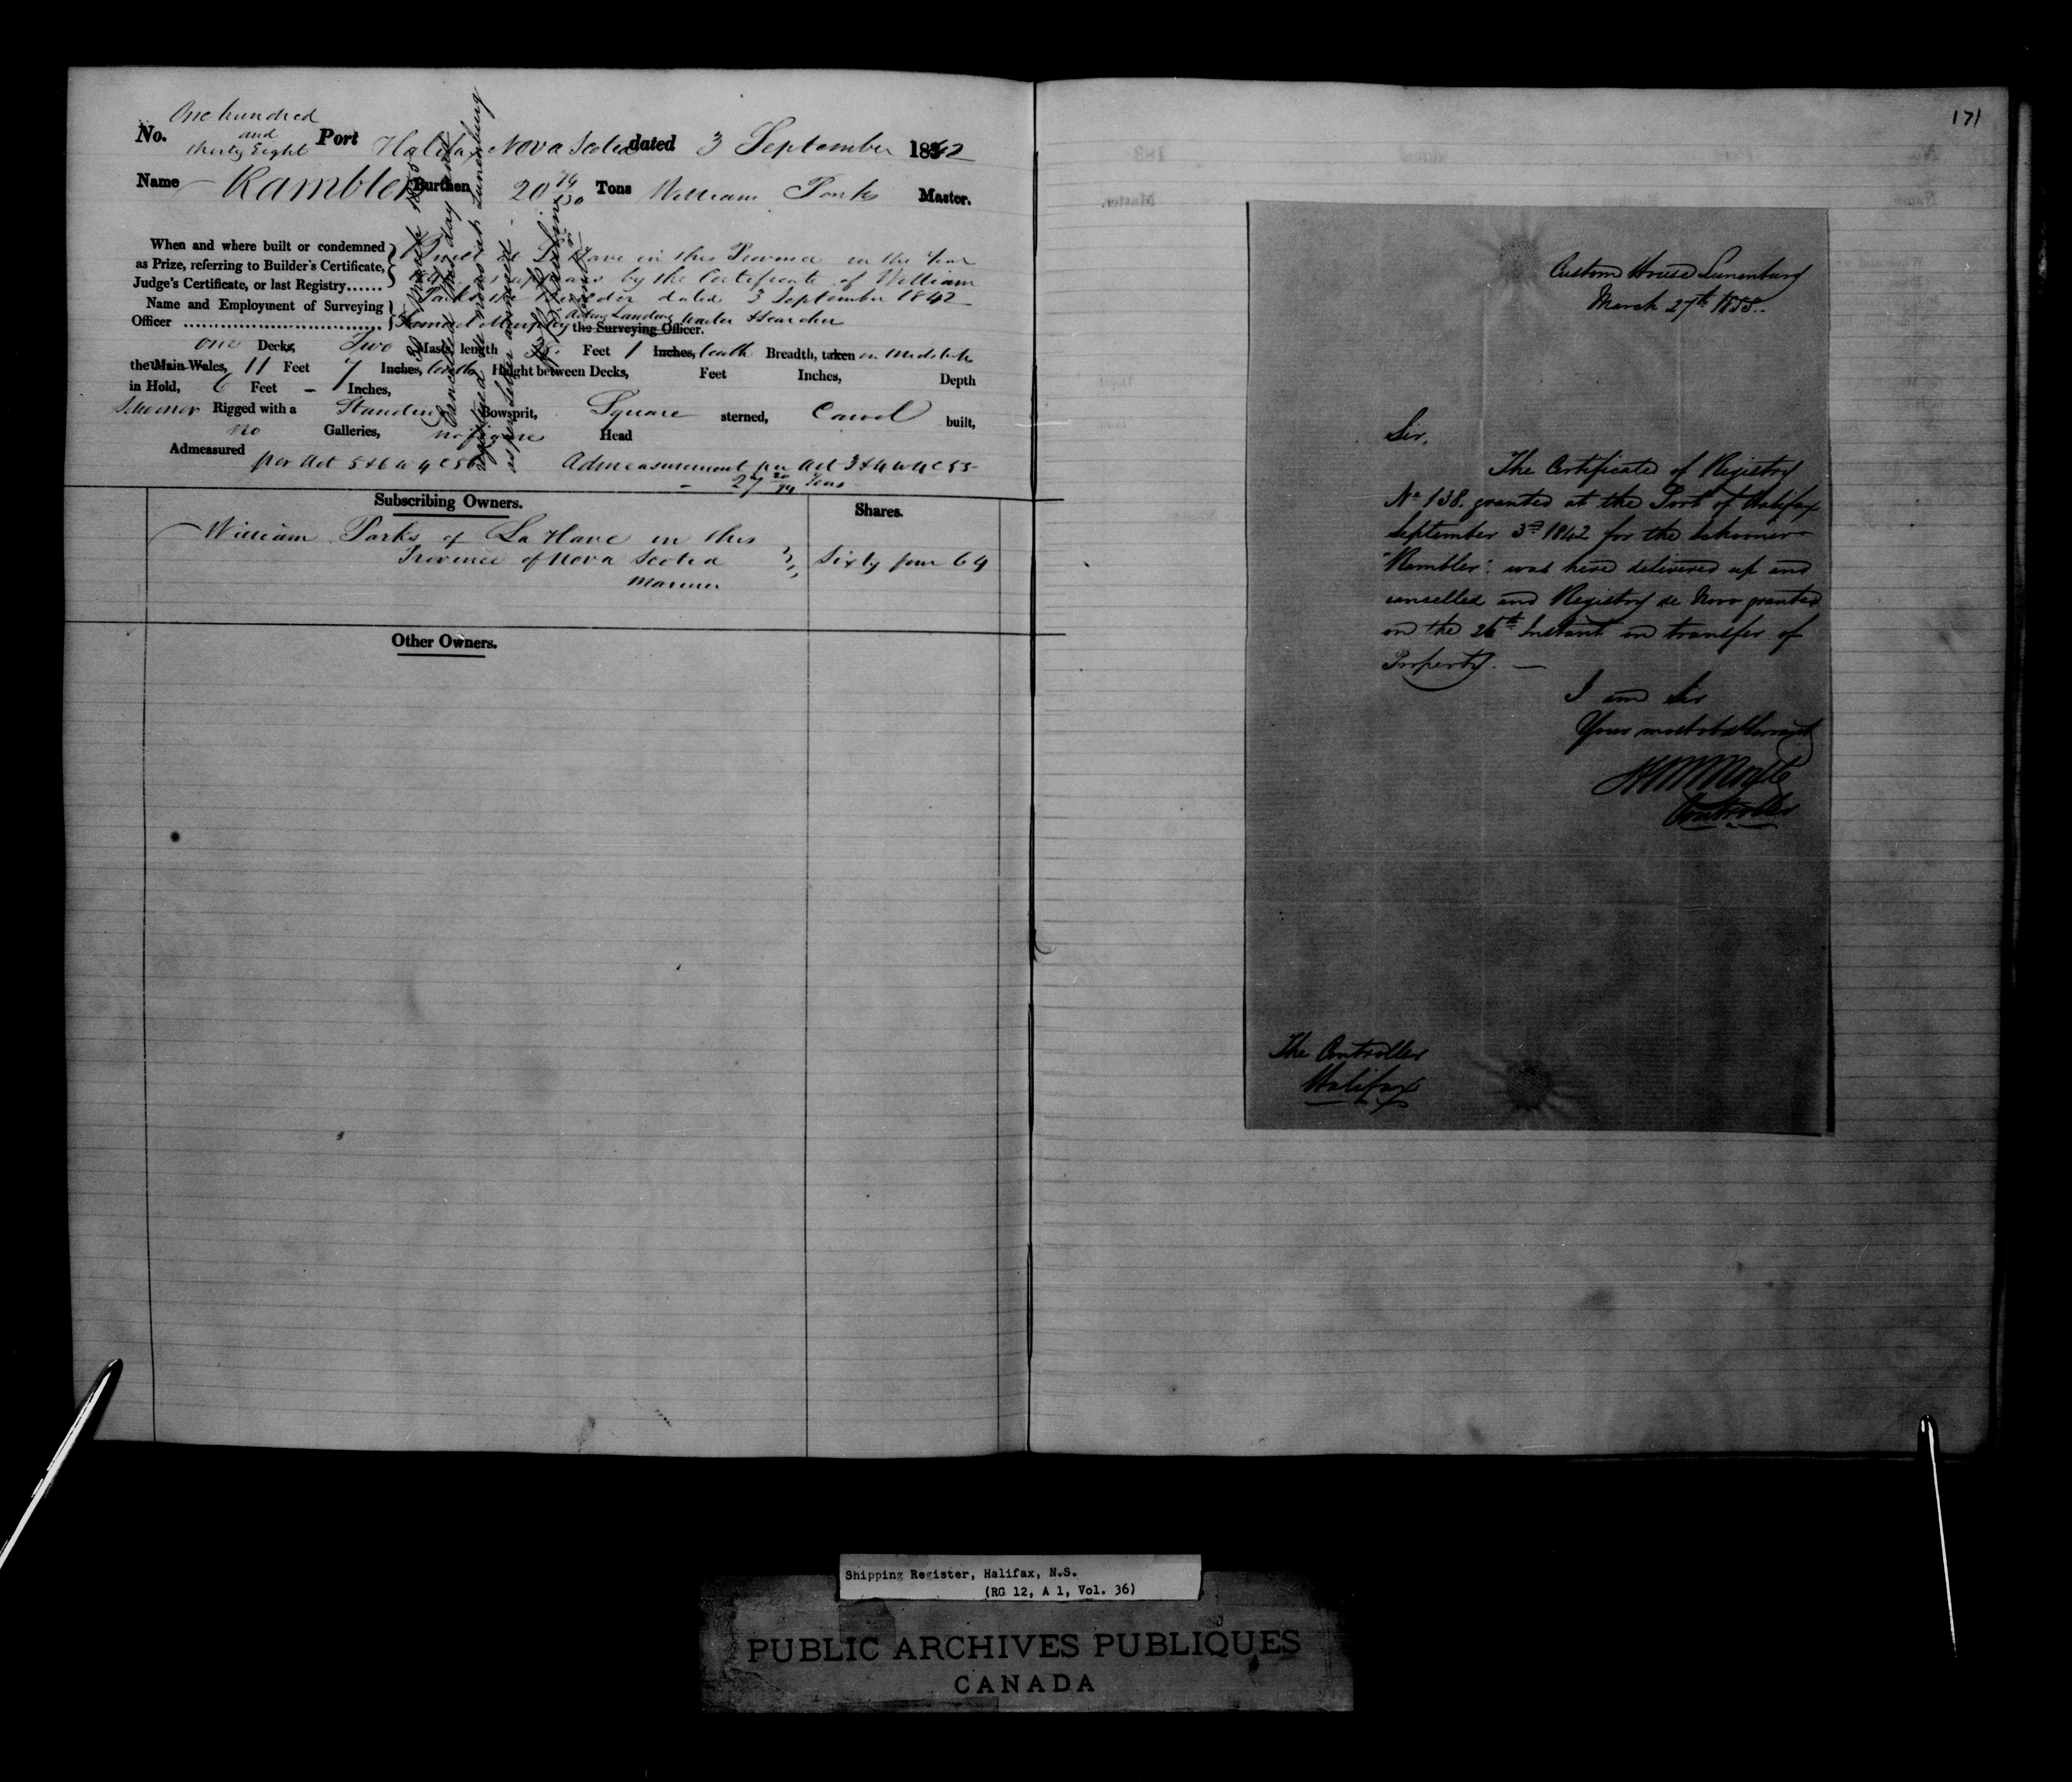 One hundred
and
No. thirty Eight Port Halifax Nova Scotia dated 3 September 1842
Name Rambler Burthen 20 Tons William Parks Master.
When and where built or condemned
as Prize, referring to Builder's Certificate,
Judge's Certificate, or last Registry......
La Have in this Province in the Year
appears by the Certificate of William
Parks the Builder dated 3 September 1842
Name and Employment of Surveying
Officer
Acting Landing Waiter & Searcher
the Surveying Officer.
One Decks, Two Masts, length 38 Feet 1 Inches, tenth Breadth, taken in Midships
the Main Wales, 11 Feet 7 Inches, tenths Height between Decks, Feet Inches, Depth
in Hold, 6 Feet - 1 Inches,
Schooner Rigged with a Standing Bowsprit, Square sterned, Carvel built,
no Galleries, no figure Head
Admeasured per Act 5 & 6 W 4 C 56 Admeasurement per Act 3 & 4 W 4 C 55
27 Tons
30 March 1855
Cancelled this day and
registered de novo at Lunenburg
as per letter annexed
Subscribing Owners. Shares.
William Parks of La Have in this
Province of Nova Scotia Sixty four 64
Mariner
Other Owners.
171
Custom House Lunenburg
March 27th 1855.
Sir,
The Certificate of Registry
No 138. granted at the Port of Halifax
September 3rd 1842 for the Schooner
"Rambler". was here delivered up and
cancelled and Registry de Novo granted
on the 26th Instant on transfer of
Property. —
I am Sir
Your most obt Servant
Controller
The Controller
Halifax
Shipping Register, Halifax, N.S.
(RG 12, A 1, Vol. 36)
PUBLIC ARCHIVES PUBLIQUES
CANADA